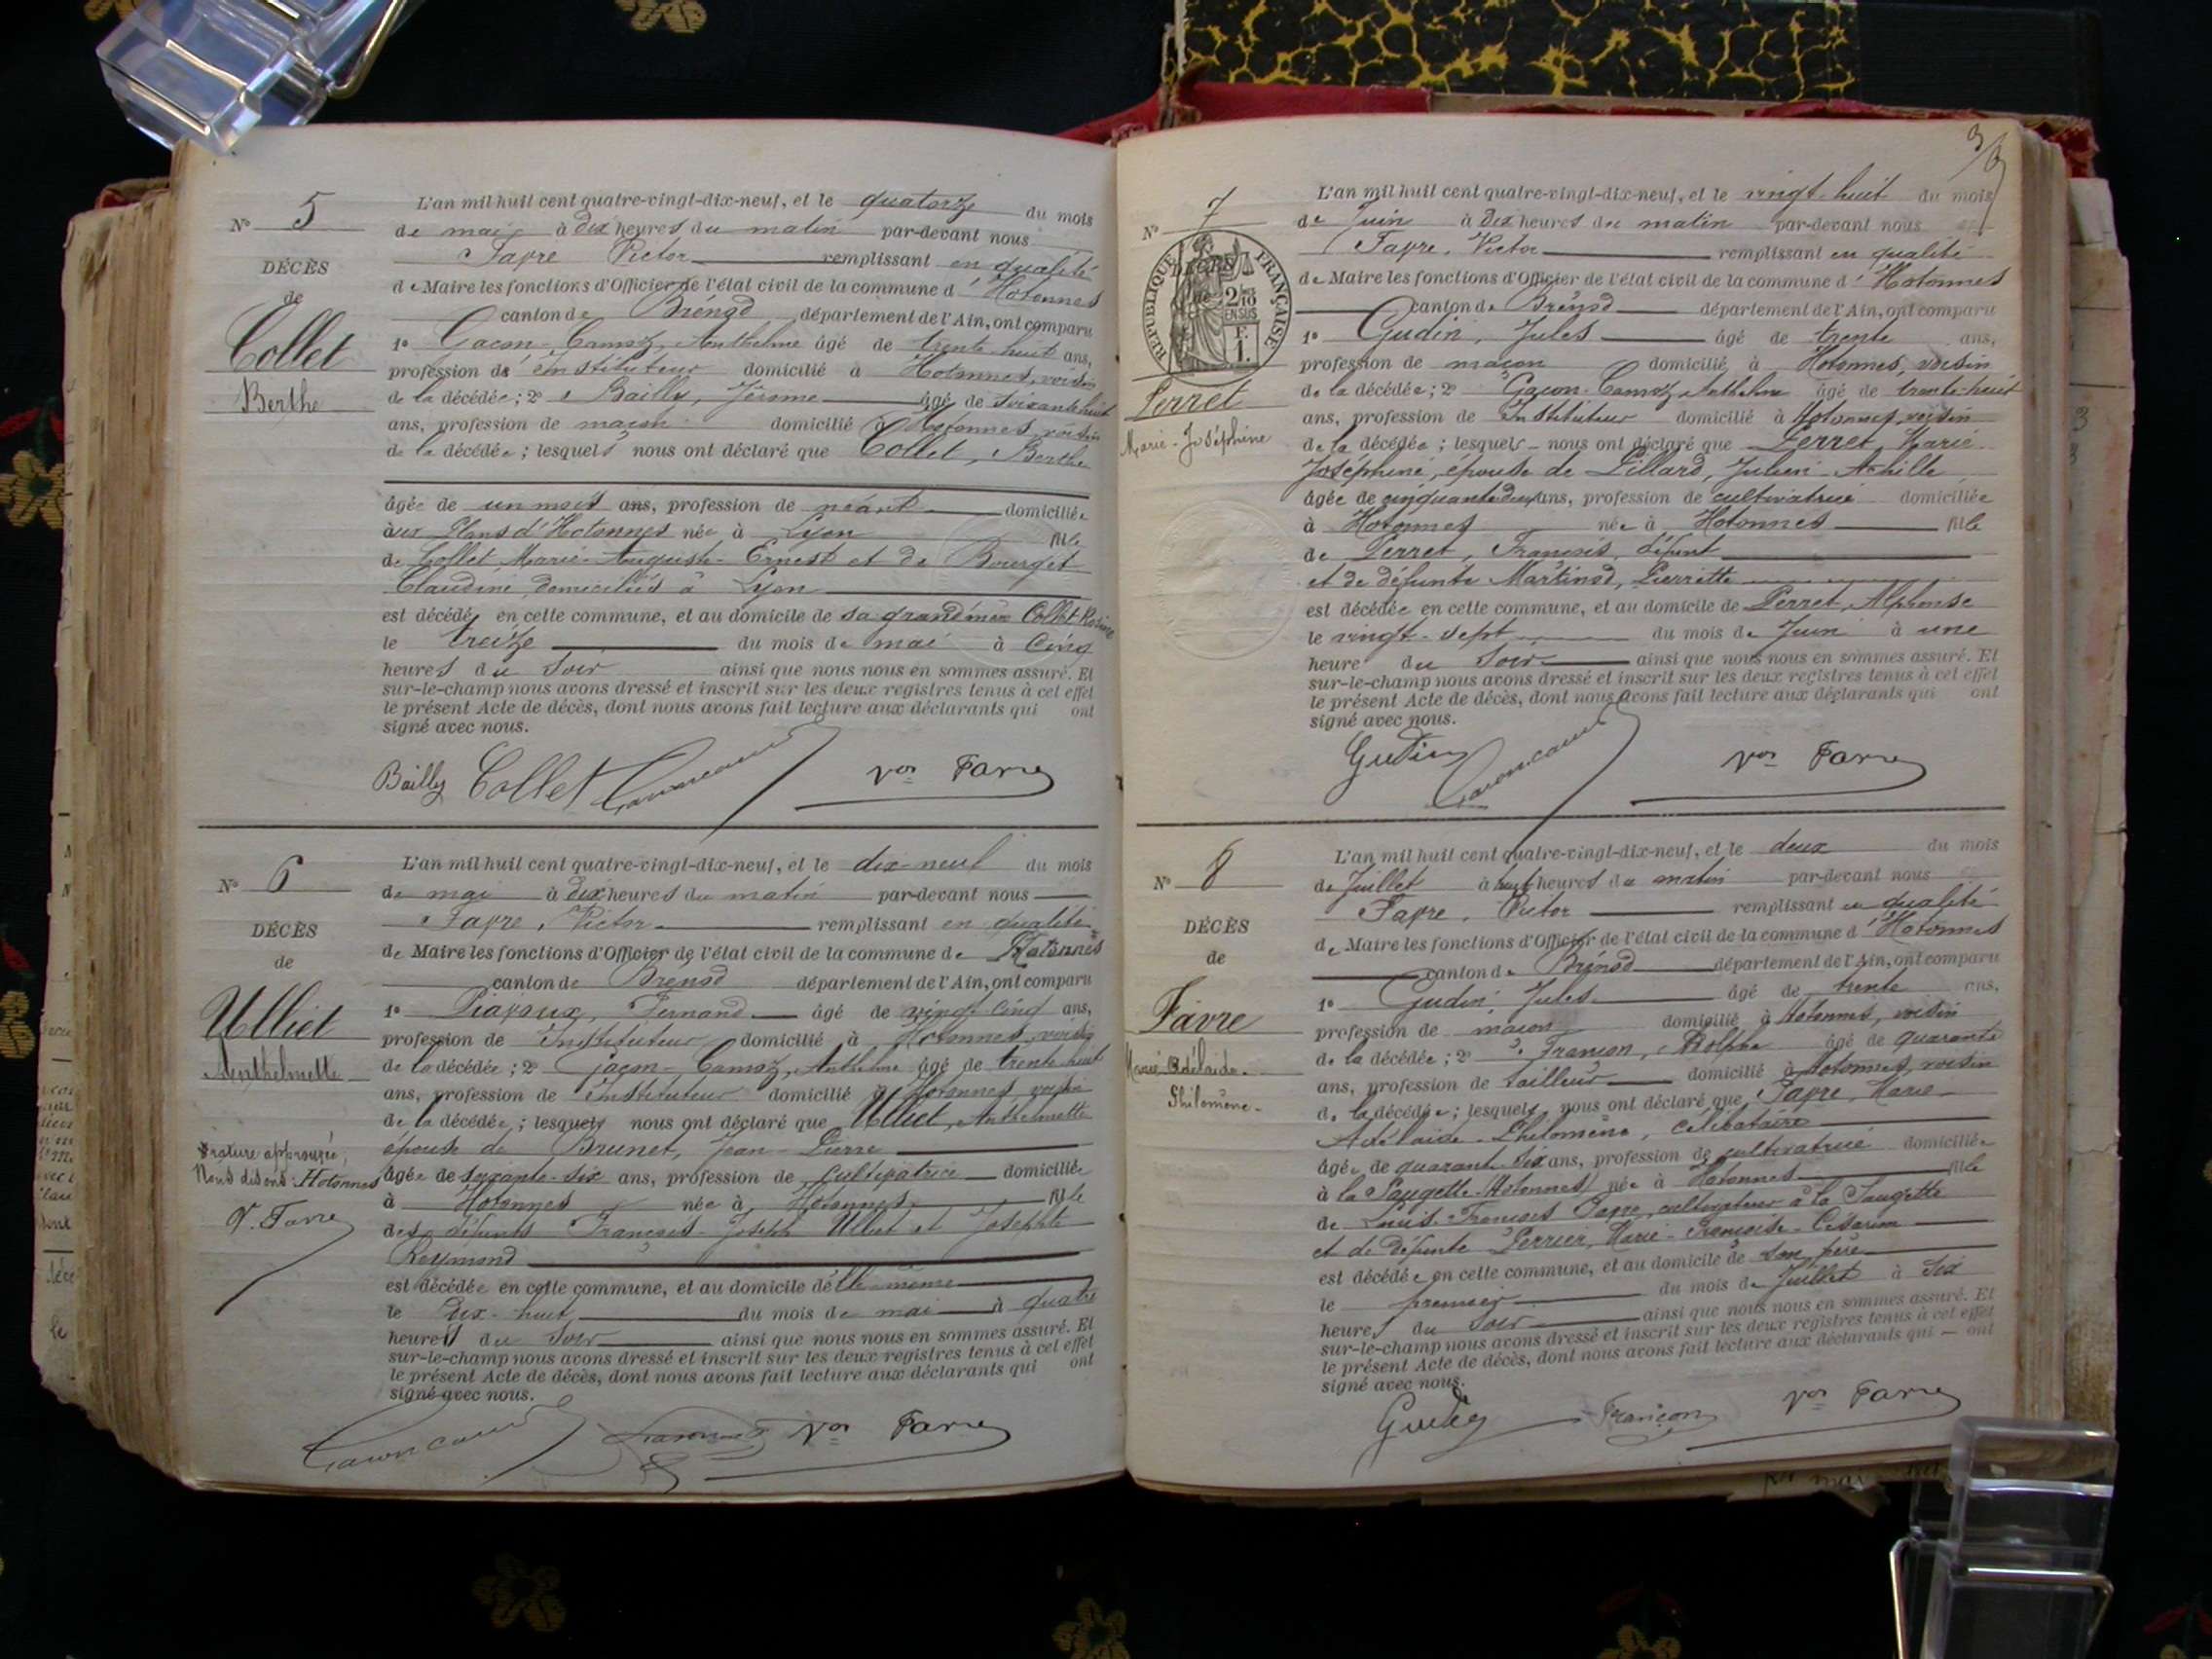 N° 5
DÉCÈS
de
Collet
Berthe
L'an mil huit cent quatre-vingt-dix-neuf, et le quatorze du mois
de mai à dix heures du matin par-devant nous
Favre Victor remplissant en qualité
de Maire les fonctions d'Officier de l'état civil de la commune d'Hotonnes
canton de Brénod département de l'Ain, ont comparu
1° Gacon-Camoz, Anthelme âgé de trente huit ans,
profession d'instituteur domicilié à Hotonnes, voisin
de la décédée; 2° Bailly, Jérome âgé de soixante huit
ans, profession de maçon domicilié à Hotonnes, voisin
de la décédée; lesquels nous ont déclaré que Collet, Berthe
âgée de un mois ans, profession de néant domiciliée
aux Plans d'Hotonnes née à Lyon fille
de Collet, Marie-Auguste-Ernest et de Bourgit
Claudine, domiciliés à Lyon
est décédée en cette commune, et au domicile de sa grand'mère Collet
le treize du mois de mai à cinq
heures du soir ainsi que nous nous en sommes assuré. Et
sur-le-champ nous avons dressé et inscrit sur les deux registres tenus à cet effet
le présent Acte de décès, dont nous avons fait lecture aux déclarants qui ont
signé avec nous.
Bailly Collet Gaconcamoz Vor Favre
N° 6
DÉCÈS
de
Ulliet
Anthelmette
Rature approuvée,
Nous disons: Hotonnes
V. Favre
L'an mil huit cent quatre-vingt-dix-neuf, et le dix-neuf du mois
de mai à dix heures du matin par-devant nous
Favre, Victor remplissant en qualité
de Maire les fonctions d'Officier de l'état civil de la commune de Hotonnes
canton de Brénod département de l'Ain, ont comparu
1° Piajoux, Fernand âgé de vingt cinq ans,
profession de Instituteur domicilié à Hotonnes, voisin
de la décédée; 2° Gacon-Camoz, Anthelme âgé de trente huit
ans, profession de Instituteur domicilié à Hotonnes, voisin
de la décédée; lesquels nous ont déclaré que Ulliet, Anthelmette
épouse de Brunet, Jean-Pierre
âgée de soixante-six ans, profession de cultivatrice domiciliée
à Hotonnes née à Hotonnes fille
des défunts François-Joseph Ulliet et Josephte
Reymond
est décédée en cette commune, et au domicile d'elle-même
le dix-huit du mois de mai à quatre
heures du soir ainsi que nous nous en sommes assuré. Et
sur-le-champ nous avons dressé et inscrit sur les deux registres tenus à cet effet
le présent Acte de décès, dont nous avons fait lecture aux déclarants qui ont
signé avec nous.
Gaconcamoz Vor Favre
N° 7
RÉPUBLIQUE FRANÇAISE
DÉCÈS
de
2/10 EN SUS
F.
1.
Perret
Marie-Joséphine
L'an mil huit cent quatre-vingt-dix-neuf, et le vingt-huit du mois
de Juin à dix heures du matin par-devant nous
Favre, Victor remplissant en qualité
de Maire les fonctions d'Officier de l'état civil de la commune d'Hotonnes
canton de Brénod département de l'Ain, ont comparu
1° Gudin, Jules âgé de trente ans,
profession de maçon domicilié à Hotonnes, voisin
de la décédée; 2° Gacon-Camoz, Anthelme âgé de trente-huit
ans, profession de Instituteur domicilié à Hotonnes, voisin
de la décédée; lesquels nous ont déclaré que Perret, Marie
Joséphine, épouse de Pillard, Julien-Achille
âgée de cinquante deux ans, profession de cultivatrice domiciliée
à Hotonnes née à Hotonnes fille
de Perret, François, défunt
et de défunte Martinod, Pierrette
est décédée en cette commune, et au domicile de Perret, Alphonse
le vingt-sept du mois de Juin à une
heure du soir ainsi que nous nous en sommes assuré. Et
sur-le-champ nous avons dressé et inscrit sur les deux registres tenus à cet effet
le présent Acte de décès, dont nous avons fait lecture aux déclarants qui ont
signé avec nous.
Gudin Gaconcamoz Vor Favre
N° 8
DÉCÈS
de
Favre
Marie-Adélaide-
Philomène-
L'an mil huit cent quatre-vingt-dix-neuf, et le deux du mois
de Juillet à huit heures du matin par-devant nous
Favre, Victor remplissant en qualité
de Maire les fonctions d'Officier de l'état civil de la commune d'Hotonnes
canton de Brénod département de l'Ain, ont comparu
1° Gudin, Jules âgé de trente ans,
profession de maçon domicilié à Hotonnes, voisin
de la décédée; 2° Françon, Adolphe âgé de quarante
ans, profession de tailleur domicilié à Hotonnes, voisin
de la décédée; lesquels nous ont déclaré que Favre, Marie
Adélaide-Philomène, célibataire
âgée de quarante-six ans, profession de cultivatrice domiciliée
à la Saugette (Hotonnes) née à Hotonnes fille
de Louis-François Favre, cultivateur à la Saugette
et de défunte Perrier, Marie-Françoise-Césarine
est décédée en cette commune, et au domicile de son père
le premier du mois de Juillet à six
heures du soir ainsi que nous nous en sommes assuré. Et
sur-le-champ nous avons dressé et inscrit sur les deux registres tenus à cet effet
le présent Acte de décès, dont nous avons fait lecture aux déclarants qui ont
signé avec nous.
Gudin Françon Vor Favre